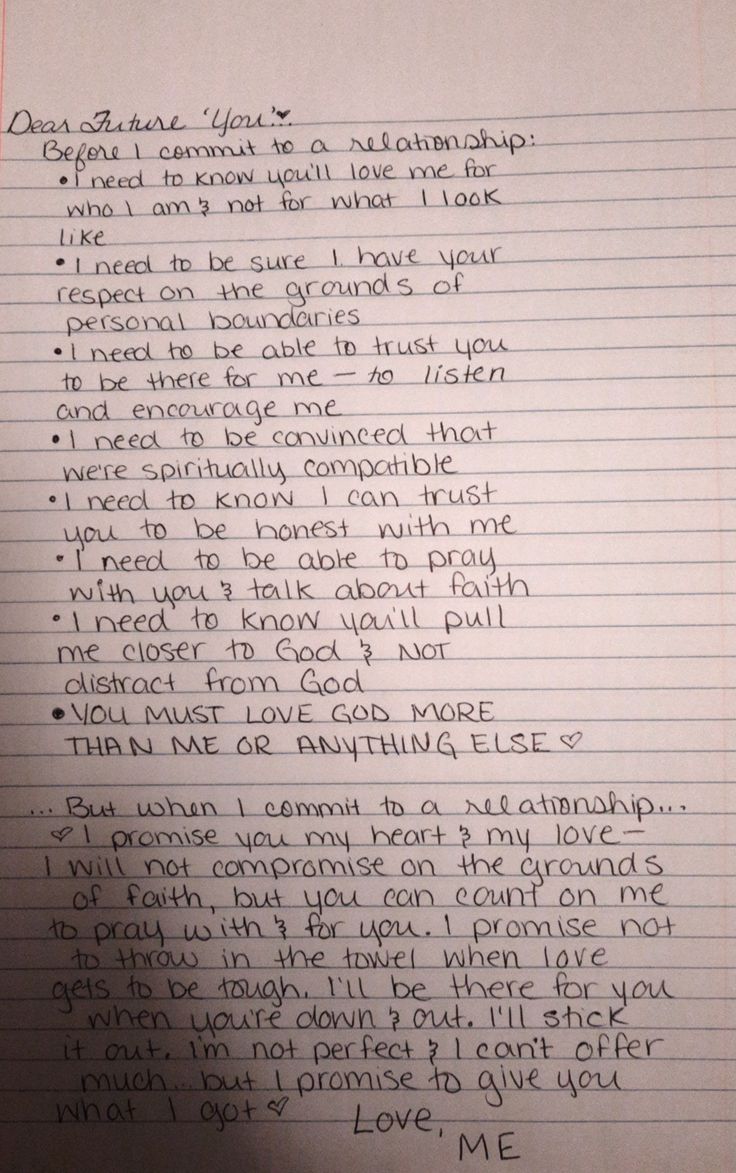 Dear Future 'You'♥.
Before I commit to a relationship:
• I need to know you'll love me for
who I am & not for what I look
like
• I need to be sure I have your
respect on the grounds of
personal boundaries
• I need to be able to trust you
to be there for me – to listen
and encourage me
• I need to be convinced that
we're spiritually compatible
• I need to know I can trust
you to be honest with me
• I need to be able to pray
with you & talk about faith
• I need to know you'll pull
me closer to God & NOT
distract from God
• YOU MUST LOVE GOD MORE
THAN ME OR ANYTHING ELSE ♡
... But when I commit to a relationship...
♡ I promise you my heart & my love –
I will not compromise on the grounds
of faith, but you can count on me
to pray with & for you. I promise not
to throw in the towel when love
gets to be tough. I'll be there for you
when you're down & out. I'll stick
it out. I'm not perfect & I can't offer
much... but I promise to give you
what I got ♡ Love,
ME